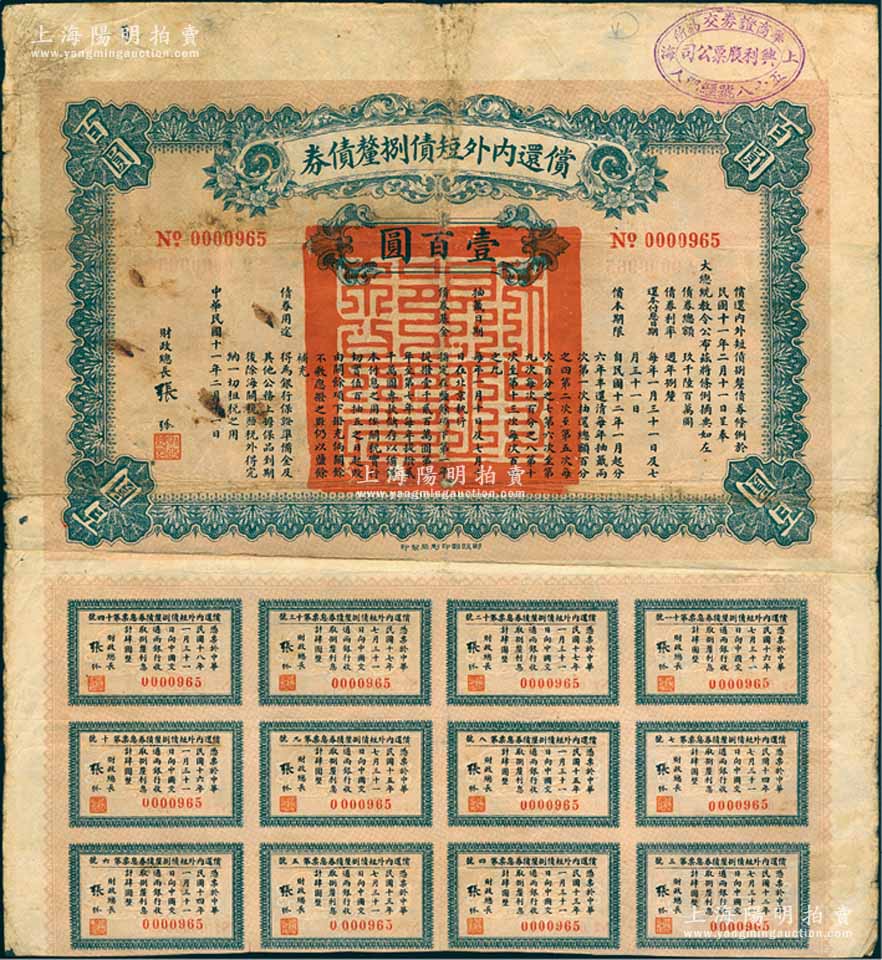 上海陽明拍賣
www.yangmingauction.com
華商證券交易所
上海
興利股票公司
百圓
百圓
償還內外短債捌釐債券
№ 0000965
№ 0000965
壹百圓
償還內外短債捌釐債券條例於
民國十一年二月十一日呈奉
大總統教令公布茲將條例摘要如左
債券總額 玖千陸百萬圓
債券利率 週年捌釐
還本付息日期 每年一月三十一日及七
月三十一日
償本期限 自民國十二年一月起分
六年半還清每年抽籤兩
次第一次抽還總額百分
之四第二次至第五次每
次百分之七第六次至第
九次每次百分之八第十
次至第十三次每次百分
之九
抽籤日期 每年一月十日及七月十
日在北京執行
債券基金 指定在鹽餘項下第一年
提撥壹千貳百萬圓第二
年至第七年每年提撥貳
千萬圓專款儲存以備還
本付息之用俟關稅實行
切實值百抽五之日起改
由關餘項下撥充倘關餘
不敷應撥之數仍以鹽餘
補充
債券用途 得為銀行保證準備金及
其他公務上擔保品到期
後除海關稅鹽稅外得完
納一切租稅之用
中華民國十一年二月十一日
財政總長 張弧
百圓
百圓
財政部印刷局製印
償還內外短債捌釐債券息票第十一號
憑票於中華
民國十六年
七月三十一
日向中國交
通兩銀行收
取捌釐利息
計肆圓整
財政總長
張弧
0000965
償還內外短債捌釐債券息票第十二號
憑票於中華
民國十七年
一月三十一
日向中國交
通兩銀行收
取捌釐利息
計肆圓整
財政總長
張弧
0000965
償還內外短債捌釐債券息票第十三號
憑票於中華
民國十七年
七月三十一
日向中國交
通兩銀行收
取捌釐利息
計肆圓整
財政總長
張弧
0000965
償還內外短債捌釐債券息票第十四號
憑票於中華
民國十八年
一月三十一
日向中國交
通兩銀行收
取捌釐利息
計肆圓整
財政總長
張弧
0000965
償還內外短債捌釐債券息票第七號
憑票於中華
民國十四年
七月三十一
日向中國交
通兩銀行收
取捌釐利息
計肆圓整
財政總長
張弧
0000965
償還內外短債捌釐債券息票第八號
憑票於中華
民國十五年
一月三十一
日向中國交
通兩銀行收
取捌釐利息
計肆圓整
財政總長
張弧
0000965
償還內外短債捌釐債券息票第九號
憑票於中華
民國十五年
七月三十一
日向中國交
通兩銀行收
取捌釐利息
計肆圓整
財政總長
張弧
0000965
償還內外短債捌釐債券息票第十號
憑票於中華
民國十六年
一月三十一
日向中國交
通兩銀行收
取捌釐利息
計肆圓整
財政總長
張弧
0000965
償還內外短債捌釐債券息票第三號
憑票於中華
民國十二年
七月三十一
日向中國交
通兩銀行收
取捌釐利息
計肆圓整
財政總長
張弧
0000965
償還內外短債捌釐債券息票第四號
憑票於中華
民國十三年
一月三十一
日向中國交
通兩銀行收
取捌釐利息
計肆圓整
財政總長
張弧
0000965
償還內外短債捌釐債券息票第五號
憑票於中華
民國十三年
七月三十一
日向中國交
通兩銀行收
取捌釐利息
計肆圓整
財政總長
張弧
0000965
償還內外短債捌釐債券息票第六號
憑票於中華
民國十四年
一月三十一
日向中國交
通兩銀行收
取捌釐利息
計肆圓整
財政總長
張弧
0000965
上海陽明拍賣
www.yangmingauction.com